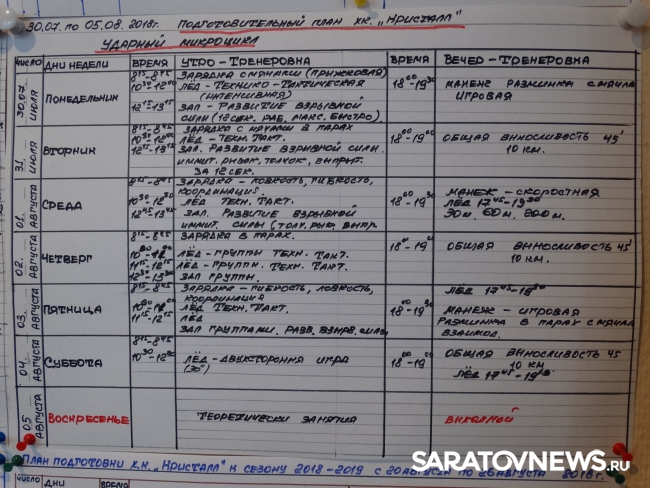 30.07. по 05.08. 2018г. Подготовительный план х.к. „Кристалл"
Ударный микроцикл
число дни недели время утро-тренеровка время вечер-тренеровка
30.07. июля Понедельник
8 15 - 8 45 зарядка с мячами (прыжковая)
10 30 - 12 00 лёд - технико-тактическая 18 00 - 19 30 манеж разминка с мяча
(интенсивная) игровая
12 15 - 13 15 зал - развитие взрывной
силы (12 сек. раб. макс. быстро)
31. июля Вторник
8 15 - 8 45 зарядка в парах
10 30 - 12 00 лёд - техн. такт. 18 00 - 19 00 общая выносливость 45'
12 15 - 13 15 зал. развитие взрывной силы. 10 км.
иммит. рывок, толчок,
за 12 сек.
01. августа Среда
8 15 - 8 45 зарядка - ловкость, гибкость,
координация. 18 00 - 19 30 манеж - скоростная
10 30 - 12 30 лёд техн. такт. лёд 17 45 - 19 30
12 45 - 13 45 зал. развитие взрывной 30м. 60м.
иммит. силы (толч. рыв.
02. августа Четверг
8 15 - 8 45 зарядка в парах.
лёд - группы техн. такт. общая выносливость 45'
11 15 - 12 15 лёд - группы. техн. такт. 10 км.
зал группы.
03. августа Пятница
8 15 - 8 45 зарядка - гибкость, ловкость, лёд 17 45 - 19 30
координация
лёд техн. такт. 18 00 - 19 30 манеж - игровая
11 15 - 12 15 лёд разминка в парах с мяча
зал группами. разв. взрыв. силы взаимод.
04. августа Суббота
8 15 - 8 45
10 30 - 12 30 лёд - двухстороння игра 18 00 - 19 00 общая выносливость 45
10 км
лёд 17 45 - 19
05 августа Воскресенье теоретически занятия выходной
План подготовки х.к. „Кристалл" к сезону 2018-2019 с 20 августа по 26 августа 2018г.
число дни время
SARATOVNEWS.RU